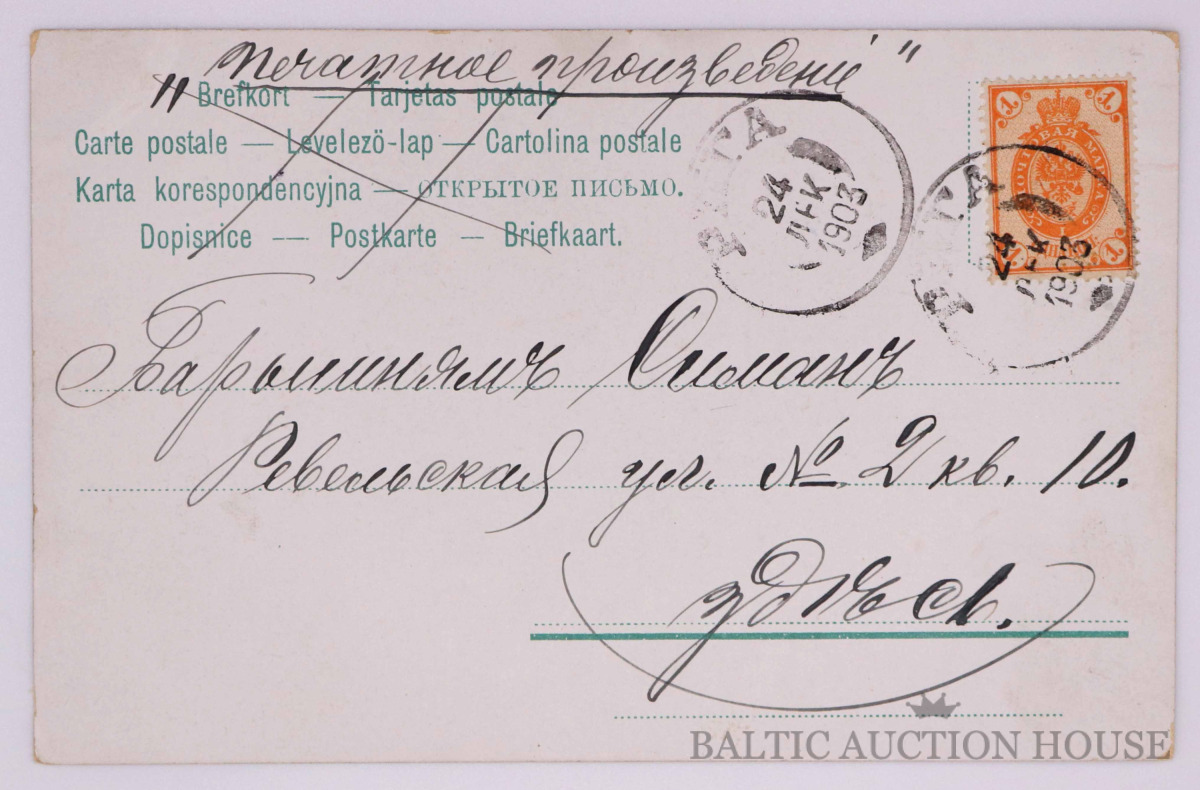 "печатное произведенiе"
Brefkort — Tarjetas postale
Carte postale — Levelezö-lap — Cartolina postale
Karta korespondencyjna — ОТКРЫТОЕ ПИСЬМО.
Dopisnice — Postkarte — Briefkaart.
РИГА
24
ДЕК
1903
1
1
РИГА
24
ДЕК
1903
1
1
Симанъ
Ревельская ул. № 2 кв. 10.
здѣсь.
BALTIC AUCTION HOUSE